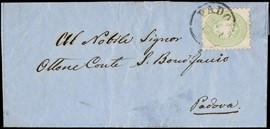 PADO
Al Nobile Signor
Ottone Conte S. Bonifacio
Padova.